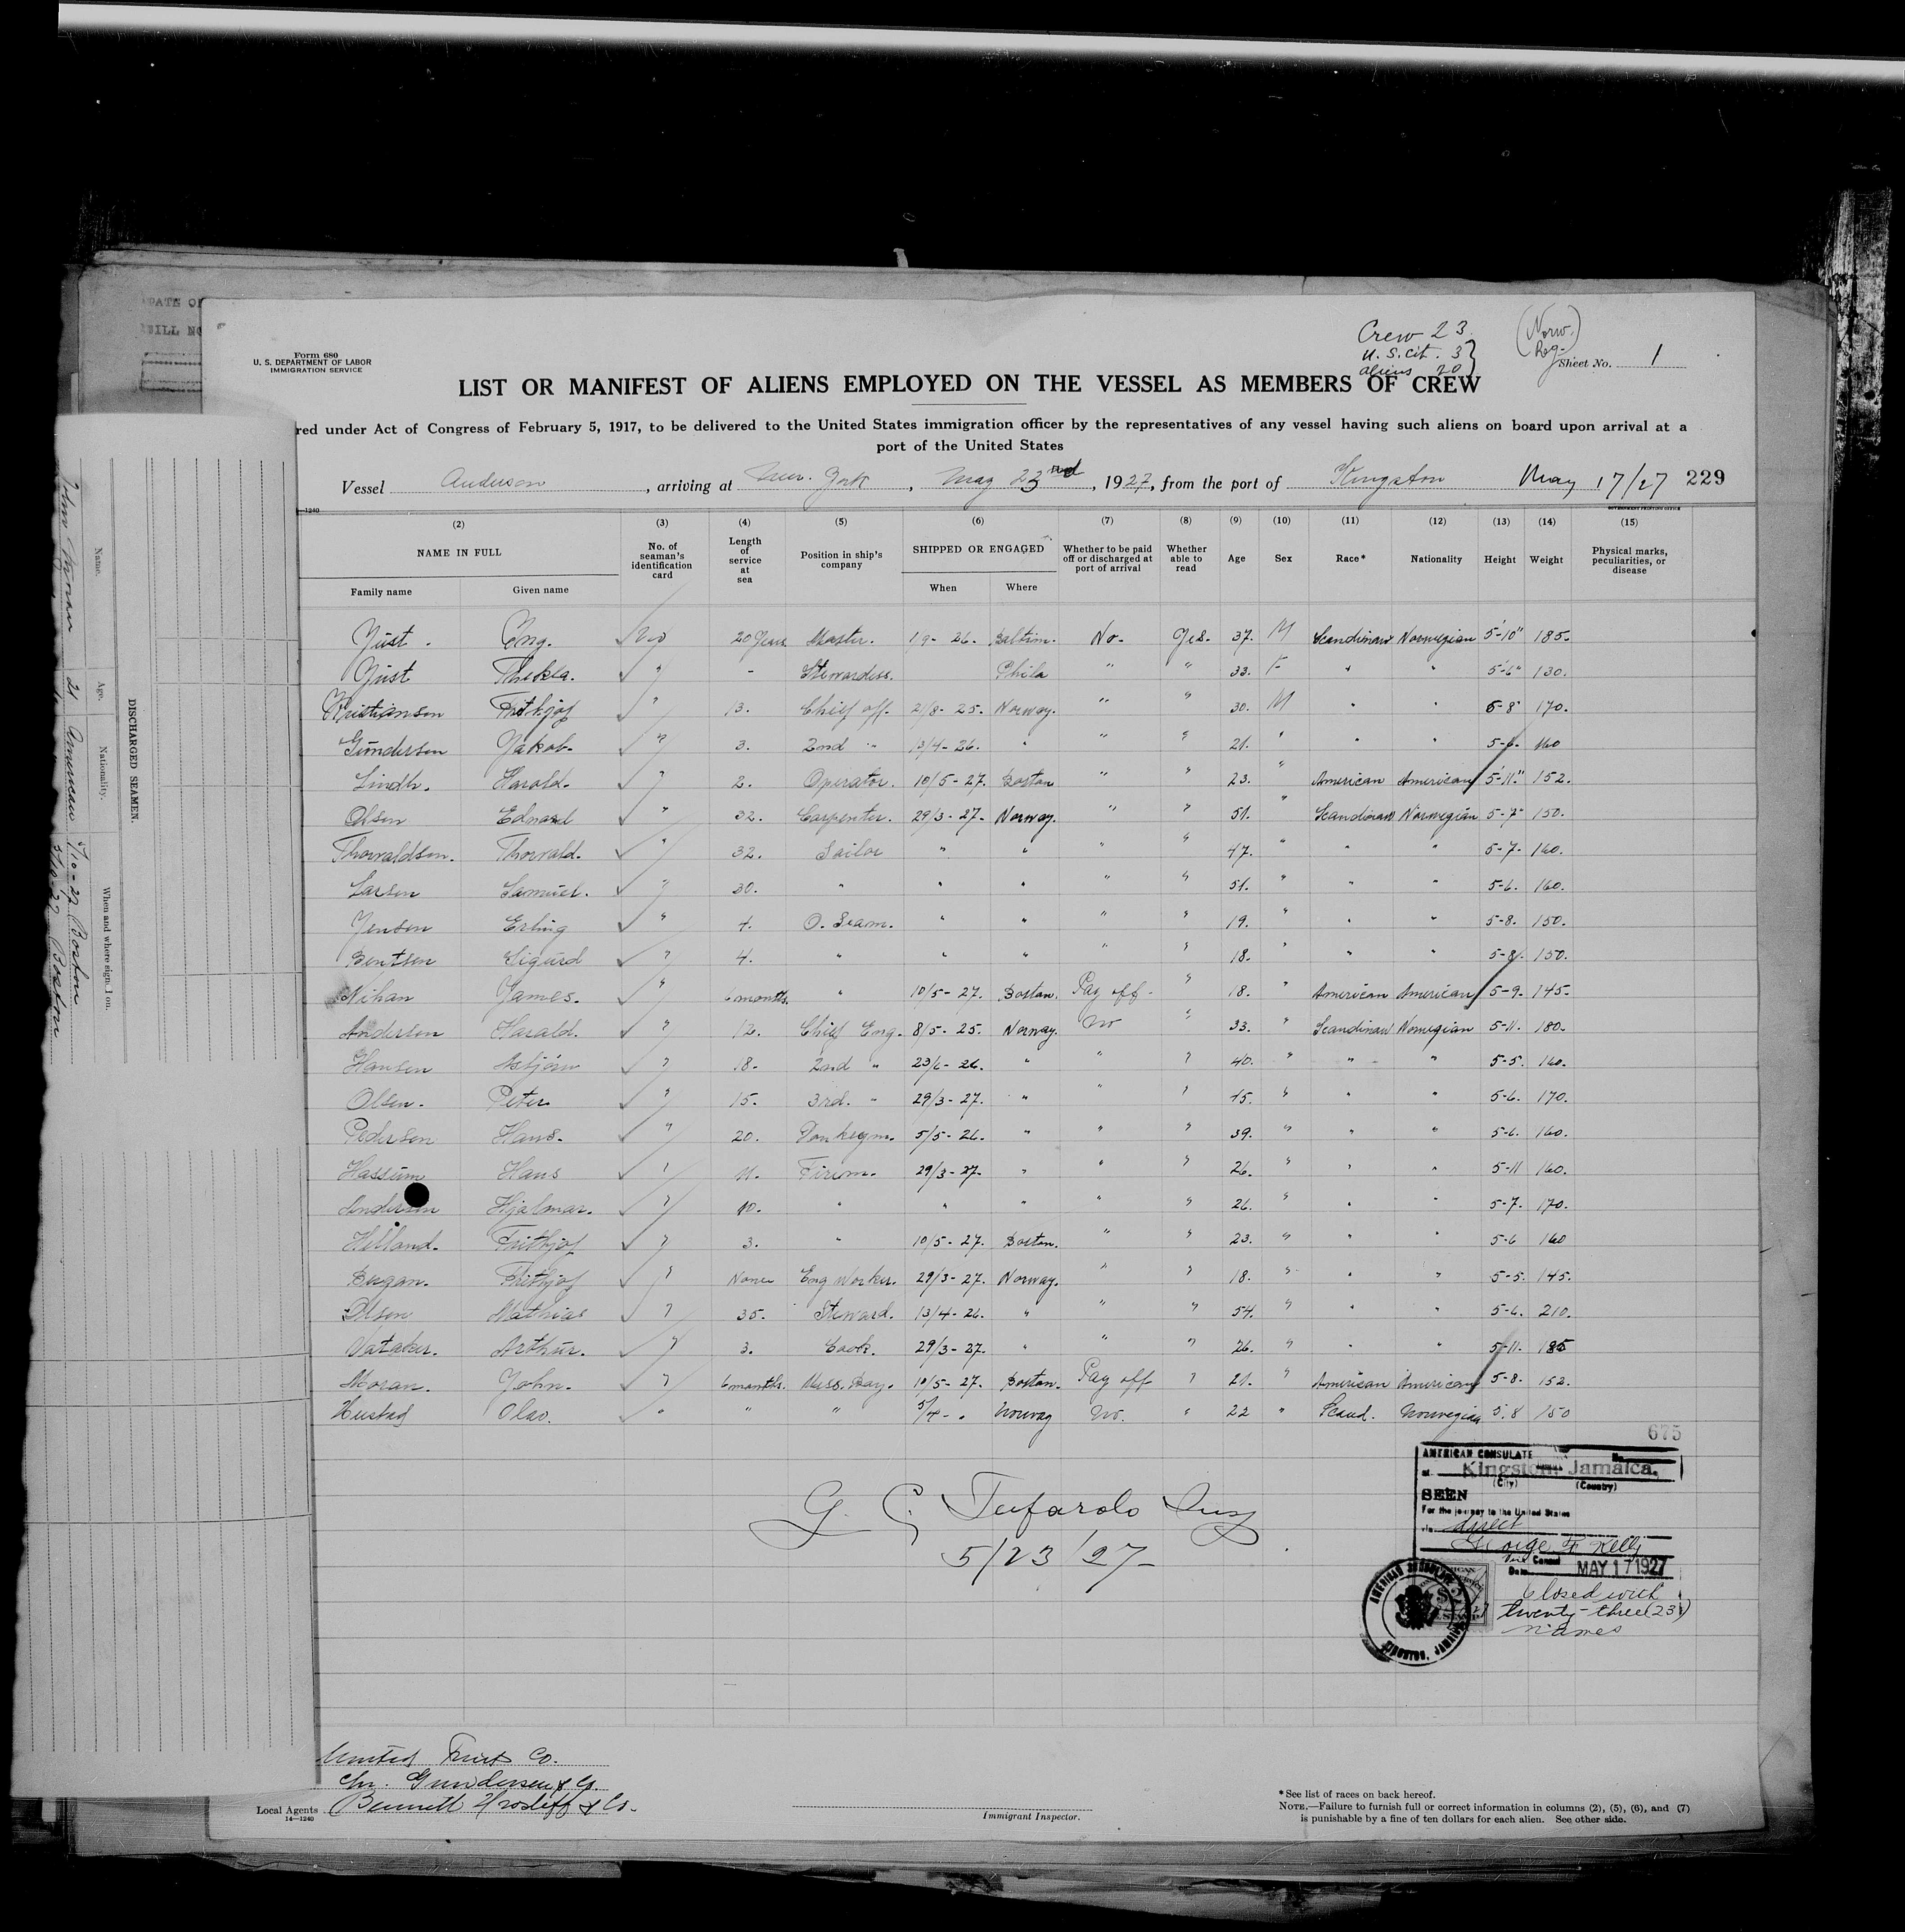 DATE OF
BILL NO
Crew 23
U.S. cit. 3
aliens 20
(Norw. Reg.)
Form 680
U. S. DEPARTMENT OF LABOR
IMMIGRATION SERVICE
Sheet No. 1
LIST OR MANIFEST OF ALIENS EMPLOYED ON THE VESSEL AS MEMBERS OF CREW
red under Act of Congress of February 5, 1917, to be delivered to the United States immigration officer by the representatives of any vessel having such aliens on board upon arrival at a
port of the United States
Vessel Anderson, arriving at New York, May 23rd, 1927, from the port of Kingston May 17/27 229
(2) (3) (4) (5) (6) (7) (8) (9) (10) (11) (12) (13) (14) (15)
NAME IN FULL No. of seaman's identification card Length of service at sea Position in ship's company SHIPPED OR ENGAGED Whether to be paid off or discharged at port of arrival Whether able to read Age Sex Race* Nationality Height Weight Physical marks, peculiarities, or disease
Family name Given name When Where
Just. Eng. No 20 Years Master. 19-26. Baltim. No- Yes. 37. M Scandinav Norwegian 5'-10" 185-
Just Thekla. " - Stewardess. Phila " " 33. F " " 5'-6" 130.
Kristiansen Frithjof " 13. Chief off. 2/8-25. Norway. " " 30. M " " 5-8" 170.
Gundersen Jakob. " 3. 2nd " 13/4-26. " " " 21. " " " 160
Lindh. Harold. " 2. Operator. 10/5-27. Boston " " 23. " American American 5'-11" 152.
Olsen Edvard " 32. Carpenter. 29/3-27. Norway. " " 51. " Scandinav Norwegian 5-7" 150.
Thorvaldsen. Thorvald. " 32. Sailor " " " " 47. " " " 5-7- 160.
Larsen Samuel. " 30. " " " " " 51. " " " 5-6. 160.
Jensen Erling " 4. O. Seam. " " " " 19. " " " 5-8. 150.
Bentsen Sigurd " 4. " " " " " 18. " " " 5-8. 150.
Nihan James. " 6 months. " 10/5-27. Boston. Pay off- " 18. " American American 5-9. 145-
Andersen Harald. " 12. Chief Eng. 8/5-25. Norway. No " 33. " Scandinav Norwegian 5-11. 180.
Hansen Asbjörn " 18. 2nd " 23/6-26. " " " 40. " " " 5-5. 160.
Olsen. Peter " 15. 3rd. " 29/3-27. " " " " " " 5-6. 170.
Pedersen Hans. " 20. Donkeym. 5/5-26. " " " 39. " " " 5-6. 160.
Hassum Hans " 11. Firem. 29/3-27. " " " 26. " " " 5-11 160.
Andersen Hjalmar. " 10. " " " " " 26. " " " 5-7. 170.
Helland. Frithjof " 3. " 10/5-27. Boston. " " 23. " " " 5-6 160
Bugan. Frithjof " None Eng Worker. 29/3-27. Norway. " " 18. " " " 5-5. 145.
Olson Mathias " 35. Steward. 13/4-26. " " " 54. " " " 5-6. 210.
Vataker. Arthur. " 3. Cook. 29/3-27. " " " 26. " " " 5-11. 185
Moran. John. " 6 months. Mess. Boy. 10/5-27. Boston. Pay off " 21. " American American 5-8. 152.
Hustad Olav. " " " 5/4-" Norway No. " 22 " Scand. Norwegian 5.8 150
675
AMERICAN CONSULATE No.
at Kingston, Jamaica.
(City) (Country)
SEEN
For the journey to the United States
via direct
George F. Kelly
Vice Consul
Date MAY 17 1927
Closed with
twenty-three (23)
names
AMERICAN CONSULATE KINGSTON, JAMAICA
G. C. Tufarolo Insp
5/23/27-
United Fruit Co.
Chr. Gundersen & Co.
Local Agents Bennett Hvoslef & Co.
14-1240
Immigrant Inspector.
*See list of races on back hereof.
NOTE.—Failure to furnish full or correct information in columns (2), (5), (6), and (7)
is punishable by a fine of ten dollars for each alien. See other side.
DISCHARGED SEAMEN.
Name. Age. Nationality. When and where sign. I on.
John Moran 21 American 5/10-27 Boston
5/10-27 Boston